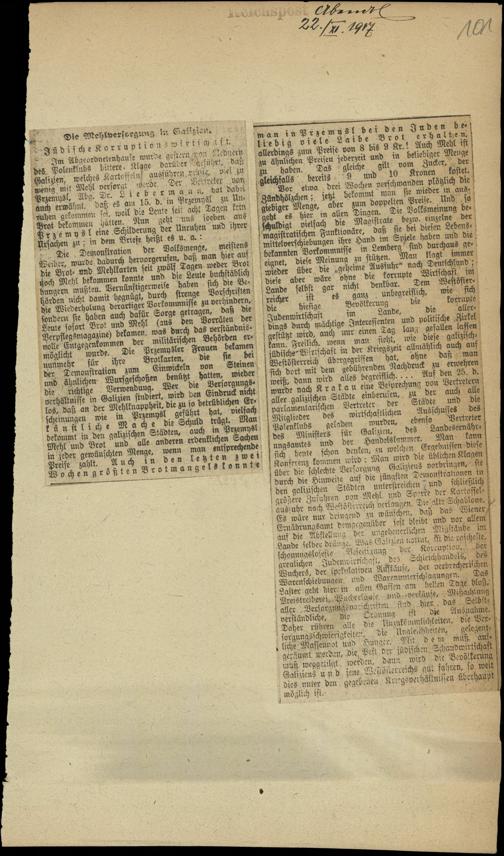 Reichspost
Abendbl.
22./XI. 1917
101
Die Mehlversorgung in Galizien.
Jüdische Korruptionswirtschaft.
Im Abgeordnetenhause wurde gestern von Rednern
des Polenklubs bittere Klage darüber geführt, daß
Galizien, welches Kartoffeln ausführen müsse, viel zu
wenig mit Mehl versorgt werde. Der Vertreter von
Przemysl, Abg. Dr. Liebermann, hat dabei
auch erwähnt, daß es am 15. d. in Przemysl zu Un-
ruhen gekommen sei, weil die Leute seit acht Tagen kein
Brot bekommen hätten. Nun geht uns soeben aus
Przemysl eine Schilderung der Unruhen und ihrer
Ursachen zu; in dem Briefe heißt es u. a.:
Die Demonstration der Volksmenge, meistens
Weiber, wurde dadurch hervorgerufen, daß man hier auf
die Brot- und Mehlkarten seit zwölf Tagen weder Brot
noch Mehl bekommen konnte und die Leute buchstäblich
hungern mußten. Vernünftigerweise haben sich die Be-
hörden nicht damit begnügt, durch strenge Vorschriften
die Wiederholung derartiger Vorkommnisse zu verhindern,
sondern sie haben auch dafür Sorge getragen, daß die
Leute sofort Brot und Mehl (aus den Vorräten der
Verpflegsmagazine) bekamen, was durch das verständnis-
volle Entgegenkommen der militärischen Behörden er-
möglicht wurde. Die Przemysler Frauen bekamen
nunmehr für ihre Brotkarten, die sie bei
der Demonstration zum Einwickeln von Steinen
und ähnlichen Wurfgeschossen benützt hatten, wieder
die richtige Verwendung. Wer die Versorgungs-
verhältnisse in Galizien studiert, wird den Eindruck nicht
los, daß an der Mehlknappheit, die zu so betrüblichen Er-
scheinungen wie in Przemysl geführt hat, vielfach
künstliche Mache die Schuld trägt. Man
bekommt in den galizischen Städten, auch in Przemysl
Mehl und Brot und alle anderen erdenklichen Sachen
in jeder gewünschten Menge, wenn man entsprechende
Preise zahlt. Auch in den letzten zwei
Wochen größten Brotmangels konnte
man in Przemysl bei den Juden be-
liebig viele Laibe Brot erhalten,
allerdings zum Preise von 8 bis 9 Kr.! Auch Mehl ist
zu ähnlichen Preisen jederzeit und in beliebiger Menge
zu haben. Das gleiche gilt vom Zucker, der
gleichfalls bereits 9 und 10 Kronen kostet.
Vor etwa drei Wochen verschwanden plötzlich die
Zündhölzchen; jetzt bekommt man sie wieder in aus-
giebiger Menge, aber zum doppelten Preise. Und so
geht es hier in allen Dingen. Die Volksmeinung be-
schuldigt vielfach die Magistrate bzw. einzelne der
magistratischen Funktionäre, daß sie bei diesen Lebens-
mittelverschiebungen ihre Hand im Spiele haben und die
bekannten Vorkommnisse in Lemberg sind durchaus ge-
eignet, diese Meinung zu stützen. Man klagt immer
wieder über die geheime Ausfuhr nach Deutschland;
diese aber wäre ohne die korrupte Wirtschaft im
Lande selbst gar nicht denkbar. Dem Westöster-
reicher ist es ganz unbegreiflich, wie sich
die hiesige Bevölkerung die korrupte
Judenwirtschaft im Lande, die aller-
dings durch mächtige Interessenten und politische Zirkel
gestützt wird, auch nur einen Tag lang gefallen lassen
kann. Freilich, wenn man sieht, wie diese galizisch-
jüdische Wirtschaft in der Kriegszeit allmählich auch auf
Westösterreich übergegriffen hat, ohne daß man
sich dort mit dem gebührenden Nachdruck zu erwehren
weiß, dann wird alles begreiflich... Auf den 25. d.
wurde nach Krakau eine Besprechung von Vertretern
aller galizischen Städte einberufen, zu der auch alle
parlamentarischen Vertreter der Städte und die
Mitglieder des wirtschaftlichen Ausschusses des
Polenklubs geladen wurden, ebenso Vertreter
des Ministers für Galizien, des Landesernäh-
rungsamtes und der Handelskammer. Man kann
sich heute schon denken, zu welchen Ergebnissen diese
Konferenz kommen wird: Man wird die üblichen Klagen
über die schlechte Versorgung Galiziens vorbringen, sie
durch die Hinweise auf die jüngsten Demonstrationen in
den galizischen Städten unterstreichen und schließlich
größere Zufuhren von Mehl und Sperre der Kartoffel-
ausfuhr nach Westösterreich verlangen. Die alte Schablone.
Es wäre nur dringend zu wünschen, daß das Wiener
Ernährungsamt demgegenüber fest bleibt und vor allem
auf die Abstellung der ungeheuerlichen Mißstände im
Lande selber dränge. Was Galizien nottut, ist die rascheste,
schonungsloseste Beseitigung der Korruption, der
greulichen Judenwirtschaft, des Schleichhandels, des
Wuchers, der spekulativen Aufkäufe, der verbrecherischen
Warenschiebungen und Warenunterschlagungen. Das
Laster geht hier in allen Gassen am hellen Tage bloß.
Preistreiberei, Wucherkäufe und -verkäufe, Mißachtung
aller Versorgungsvorschriften sind hier das Selbst-
verständliche, die Ordnung ist die Ausnahme.
Daher rühren alle die Unzukömmlichkeiten, die Ver-
sorgungsschwierigkeiten, die Ungleichheiten, gelegent-
liche Massennot und Hunger. Mit dem muß auf-
geräumt werden, die Pest der jüdischen Schandwirtschaft
muß weggetilgt werden, dann wird die Bevölkerung
Galiziens und jene Westösterreichs gut fahren, so weit
dies unter den gegebenen Kriegsverhältnissen überhaupt
möglich ist.